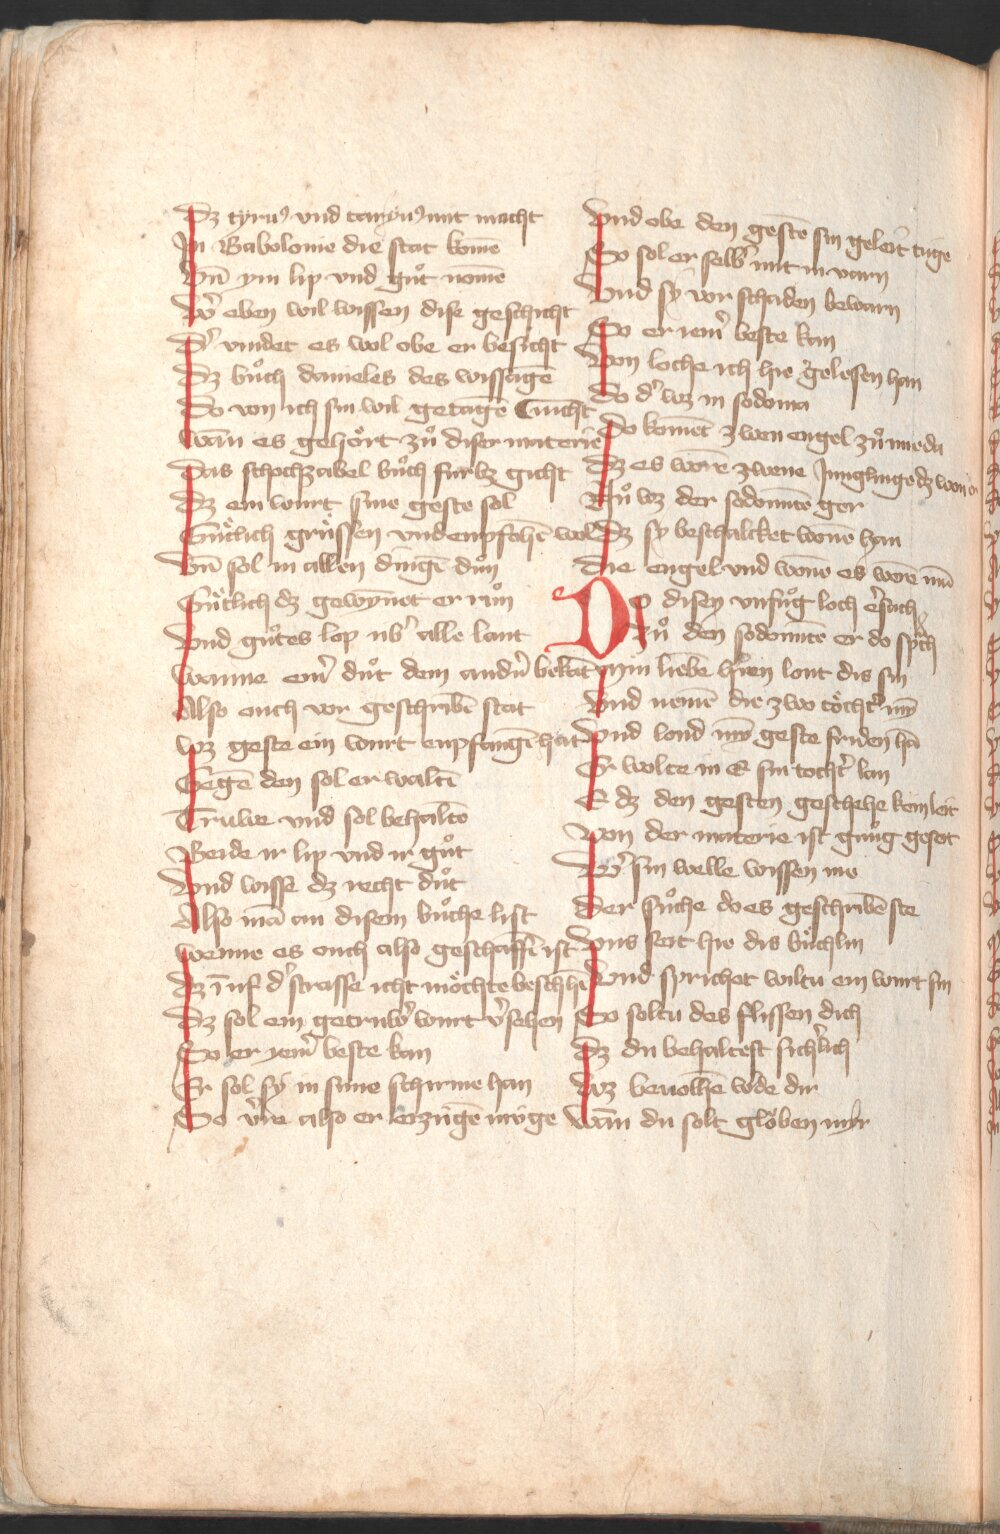 Dz tyrus vnd caryus mit macht
In Babolonie die stat komē
Vn̄ ym lip vnd gůt nomē
Wˀ eben wil wissen dise geschicht
Dˀ vindet es wol obe er besicht
Dz bůch danieles des wissagē
Do von ich sin wil getagē
wān es gehoͤrt zů diser materie nicht
Das schochzabel bůch furbz gicht
Dz ein wurt sine geste sol
Guͤtlich gruͤssen vnd enpfohē wol
Vn̄ sol in allen dingē důn
Guͤtlich dz gewÿnet er růn
Vnd gůtes lop vbˀ alle lant
wanne einˀ důt dem andˀn bekāt
Also ouch vor geschribē stat
Wz geste ein wurt enpfangē hat
Gegē den sol er waltē
Truwe vnd sol behaltē
Beide ir lip vnd ir gůt
Vnd wisse dz recht důt
Also mā an disem bůche list
wenne es ouch also geschaffē ist
Dz in vf dˀ strasse icht moͤchte beschehē
Dz sol ein getruwˀ wurt vˀsehen
So er yemˀ beste kan
Er sol sÿ in sime schirme han
So vˀre also er erzúgē múge
Vnd obe den gestē sin geleit túge
So sol er selbˀ mit in varn
Vnd sÿ vor schaden bewarn
So er iemˀ beste kan
Von loche ich hie gelesen han
Do dˀ wz in sodoma
Do komēt zwen engel zů ime da
Dz es werē zwene Jungelinge dz won er
Nů wz der sodomitē ger
Dz sy beschalcket wonē han
Die engel vnd wene es were mā
Do disen vnfůg loch ersach
Zů den sodomitē er do sprach
Min liebē hˀren lont dis sin
Vnd nemē die zwo toͤchtˀ min
Vnd lond min geste friden hā
Er wolte in E sin tochtˀ lan
E dz den gesten geschehe kein leit
Von der materie ist gnůg geseit
Wˀ sin welle wissen me
Der sůche do es geschribē ste
Vns seit hie dis buͤchlin
Vnd sprichet wiltu ein wurt sin
So soltu des flissen dich
Dz du behaltest sichˀlich
Wz beuolhē wˀde dir
wān du solt gloͤben mir